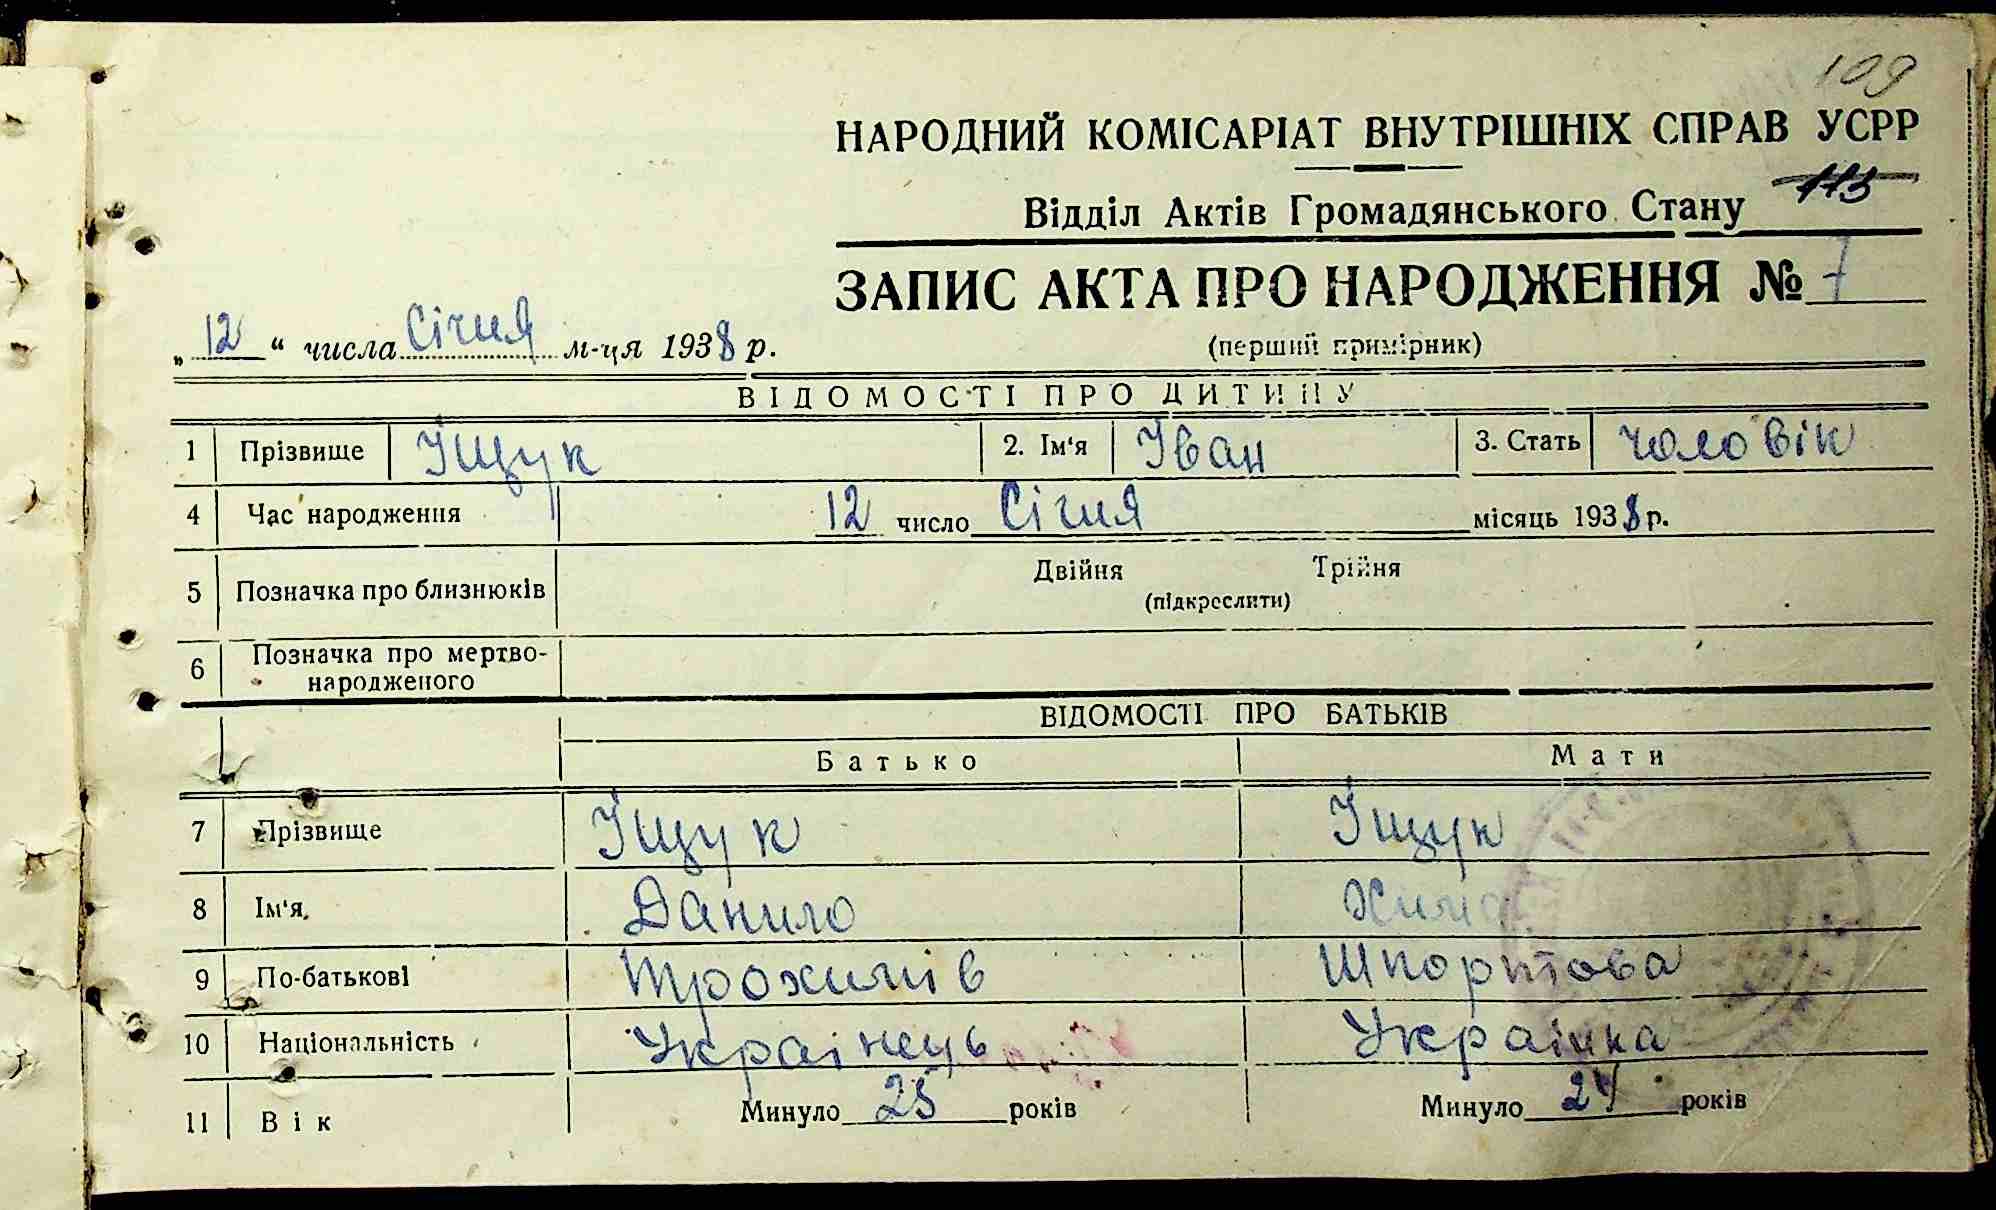 109
НАРОДНИЙ КОМІСАРІАТ ВНУТРІШНІХ СПРАВ УСРР
113
Відділ Актів Громадянського Стану
ЗАПИС АКТА ПРО НАРОДЖЕННЯ № 7
(перший примірник)
„12“ числа Січня м-ця 1938 р.
ВІДОМОСТІ ПРО ДИТИНУ
1 Прізвище Іщук 2. Ім'я Іван 3. Стать чоловік
4 Час народження 12 число Січня місяць 1938 р.
5 Позначка про близнюків Двійня Трійня
(підкреслити)
6 Позначка про мертво-
народженого
ВІДОМОСТІ ПРО БАТЬКІВ
Батько Мати
7 Прізвище Іщук Іщук
8 Ім'я Данило Хима
9 По-батькові Трохимів Шпортова
10 Національність Украінець Украінка
11 Вік Минуло 25 років Минуло 24 років